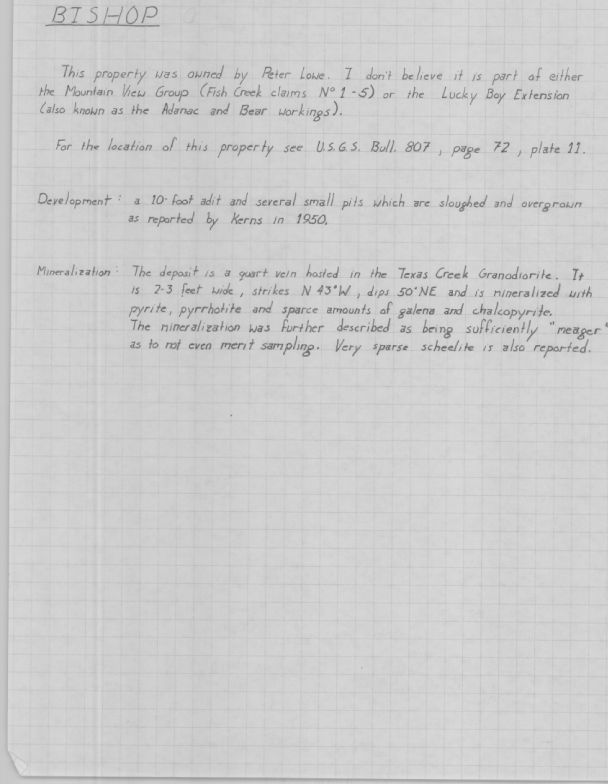 BISHOP
This property was owned by Peter Lowe. I don't believe it is part of either
the Mountain View Group (Fish Creek claims Nº 1-5) or the Lucky Boy Extension
(also known as the Adanac and Bear workings).
For the location of this property see U.S.G.S. Bull. 807, page 72, plate 11.
Development: a 10-foot adit and several small pits which are sloughed and overgrown
as reported by Kerns in 1950.
Mineralization: The deposit is a quart vein hosted in the Texas Creek Granodiorite. It
is 2-3 feet wide, strikes N 43°W, dips 50°NE and is mineralized with
pyrite, pyrrhotite and sparce amounts of galena and chalcopyrite.
The mineralization was further described as being sufficiently "meager"
as to not even merit sampling. Very sparse scheelite is also reported.